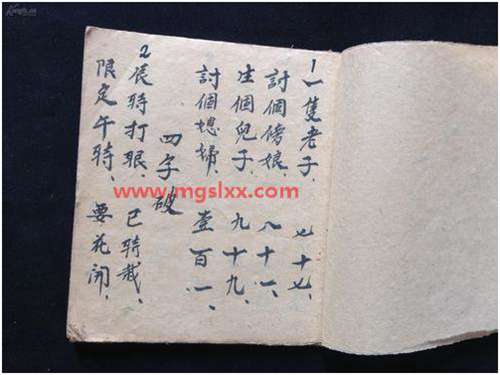 1 一隻老子、七十七、
討個傍娘、八十一、
生個兒子、九十九、
討個媳婦、壹百一、
四字破
2 辰時打眼、已時栽、
限定午時、要花開、
www.mgslxx.com